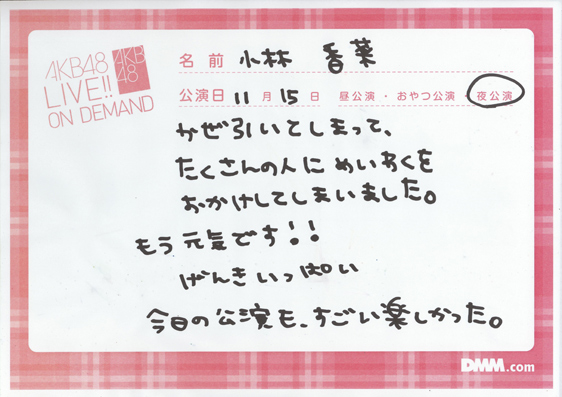 AKB48
LIVE!!
ON DEMAND
AKB
48
名前 小林 香菜
公演日 11月15日 昼公演・おやつ公演・夜公演
かぜ引いてしまって、
たくさんの人にめいわくを
おかけしてしまいました。
もう元気です!!
げんきいっぱい
今日の公演も、すごい楽しかった。
DMM.com